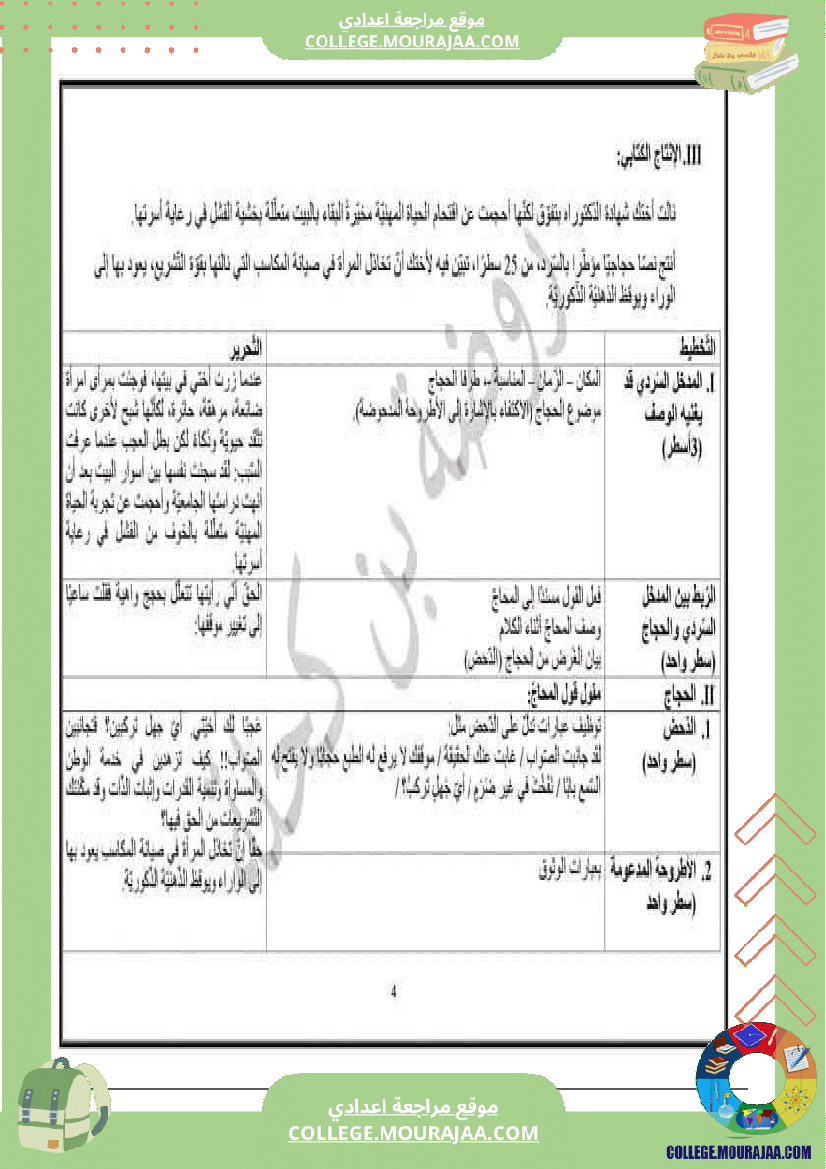 موقع مراجعة اعدادي
COLLEGE.MOURAJAA.COM
III. الإنتاج الكتابي:
نالت أختك شهادة الدّكتوراه بتفوّق لكنّها أحجمت عن اقتحام الحياة المهنيّة مخيّرةً البقاء بالبيت متعلّلة بخشية الفشل في رعاية أسرتها.
أنتج نصّا حجاجيّا مؤطّرا بالسّرد، من 25 سطرًا، تبيّن فيه لأختك أنّ تخاذل المرأة في صيانة المكاسب التي نالتها بقوّة التّشريع، يعود بها إلى
الوراء ويوقظ الذهنيّة الذّكوريّة.
التّخطيط
التّحرير
I. المدخل السّردي قد
يغنيه الوصف
(3أسطر)
المكان – الزّمان – المناسبة – طرفا الحجاج
موضوع الحجاج (الاكتفاء بالإشارة إلى الأطروحة المدحوضة).
عندما زرت أختي في بيتها، فوجئت بمرأى امرأة
ضائعة، مرهقة، حائرة، لكأنّها شبح لأخرى كانت
تتّقد حيويّة وذكاء لكن بطل العجب عندما عرفت
السّبب: لقد سجنت نفسها بين أسوار البيت بعد أن
أنهت دراستها الجامعيّة وأحجمت عن تجربة الحياة
المهنيّة متعلّلة بالخوف من الفشل في رعاية
أسرتها.
الرّبط بين المدخل
السّردي والحجاج
(سطر واحد)
فعل القول مسندًا إلى المحاجّ
وصف المحاجّ أثناء الكلام
بيان الغرض من الحجاج (الدّحض)
الحقّ أنّي رأيتها تتعلّل بحجج واهية فقلت ساعيًا
إلى تغيير موقفها:
II. الحجاج
مقول قول المحاجّ:
1. الدّحض
(سطر واحد)
توظيف عبارات تدلّ على الدّحض مثل:
لقد جانبت الصّواب / غابت عنك لحقيقة / موقفك لا يرفع له الطبع حجابًا ولا يفتح له
السّمع بابًا / نَفَخْتَ في غير ضَرَمٍ / أيّ جَهلٍ تَركبُ؟ /
عجبًا لك أُخيّتي أيّ جهل تركبين؟ فتجانبين
الصّواب!! كيف تزهدين في خدمة الوطن
والمساواة وتنمية القدرات وإثبات الذّات وقد مكّنتك
التّشريعات من الحق فيها؟
2. الأطروحة المدعومة
(سطر واحد
بعبارات الوثوق
حقًا إنّ تخاذل المرأة في صيانة المكاسب يعود بها
إلى الوراء ويوقظ الذّهنيّة الذّكوريّة.
4
موقع مراجعة اعدادي
COLLEGE.MOURAJAA.COM
COLLEGE.MOURAJAA.COM